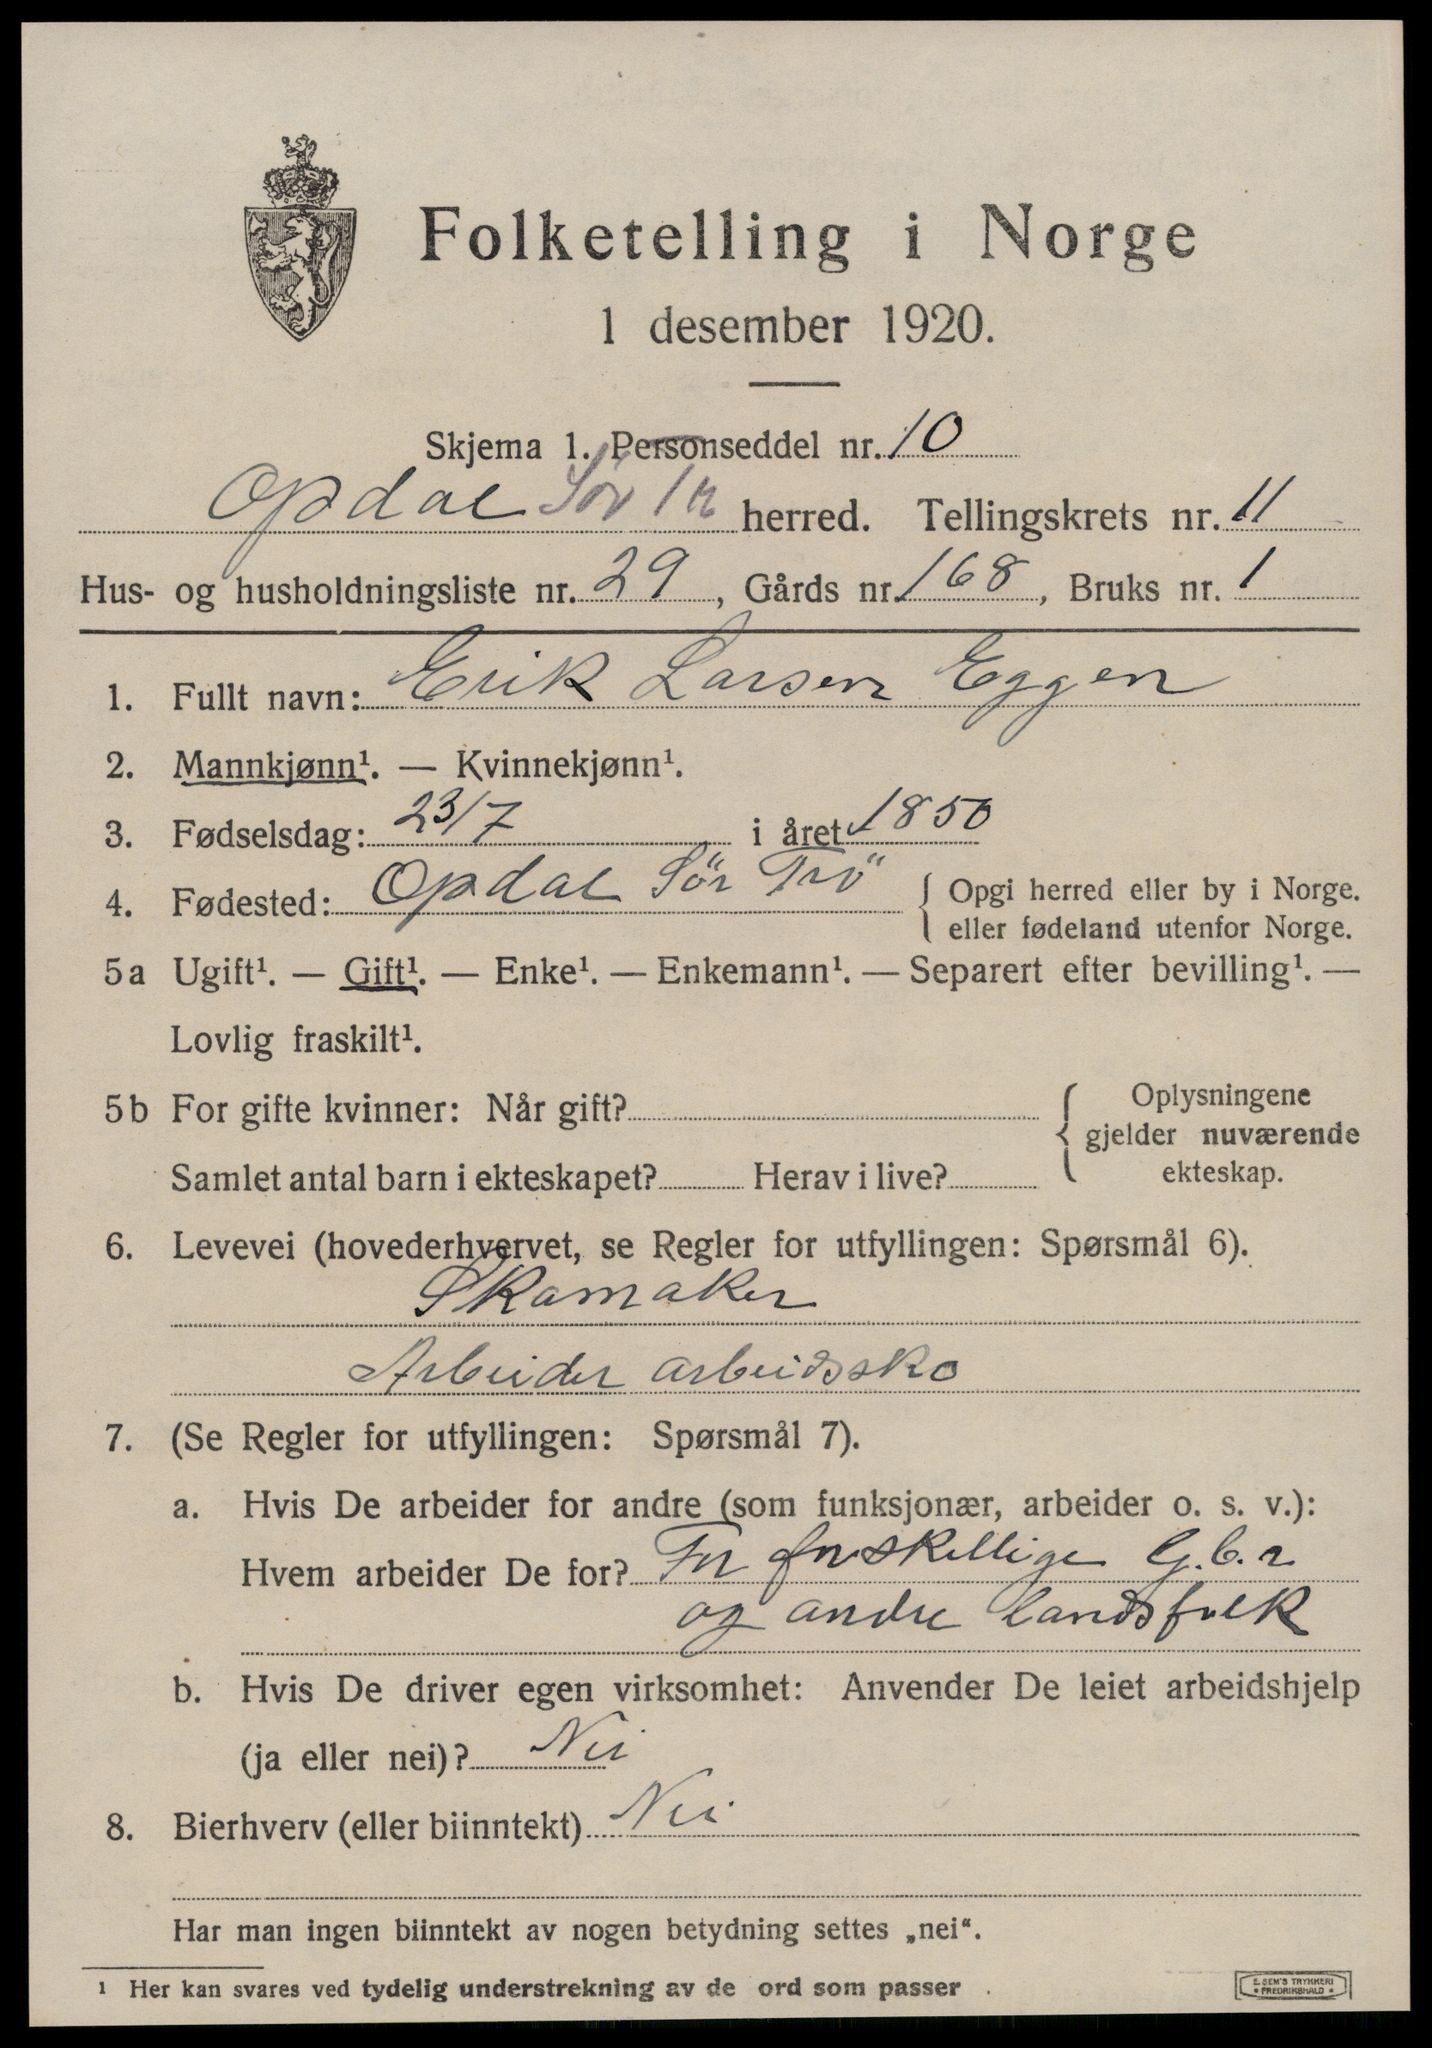 Folketelling i Norge
1 desember 1920.
Skjema 1. Personseddel nr. 10
Opdal Sör Tr herred. Tellingskrets nr. 11
Hus- og husholdningsliste nr. 29, Gårds nr. 168, Bruks nr. 1
1. Fullt navn: Erik Larsen Eggen
2. Mannkjønn¹. — Kvinnekjønn¹.
3. Fødselsdag: 23/7 i året 1850
4. Fødested: Opdal Sör Trö { Opgi herred eller by i Norge.
eller fødeland utenfor Norge.
5a Ugift¹. — Gift¹. — Enke¹. — Enkemann¹. — Separert efter bevilling¹. —
Lovlig fraskilt¹.
5b For gifte kvinner: Når gift? { Oplysningene
gjelder nuværende
Samlet antal barn i ekteskapet? Herav i live? ekteskap.
6. Levevei (hovederhvervet, se Regler for utfyllingen: Spørsmål 6).
Skomaker
Arbeider arbeidssko
7. (Se Regler for utfyllingen: Spørsmål 7).
a. Hvis De arbeider for andre (som funksjonær, arbeider o. s. v.):
Hvem arbeider De for? For forskellige G.b.r
og andre landsfolk
b. Hvis De driver egen virksomhet: Anvender De leiet arbeidshjelp
(ja eller nei)? Nei
8. Bierhverv (eller biinntekt) Nei
Har man ingen biinntekt av nogen betydning settes „nei“.
¹ Her kan svares ved tydelig understrekning av de ord som passer
E. SEM'S TRYKKERI
* FREDRIKSHALD *